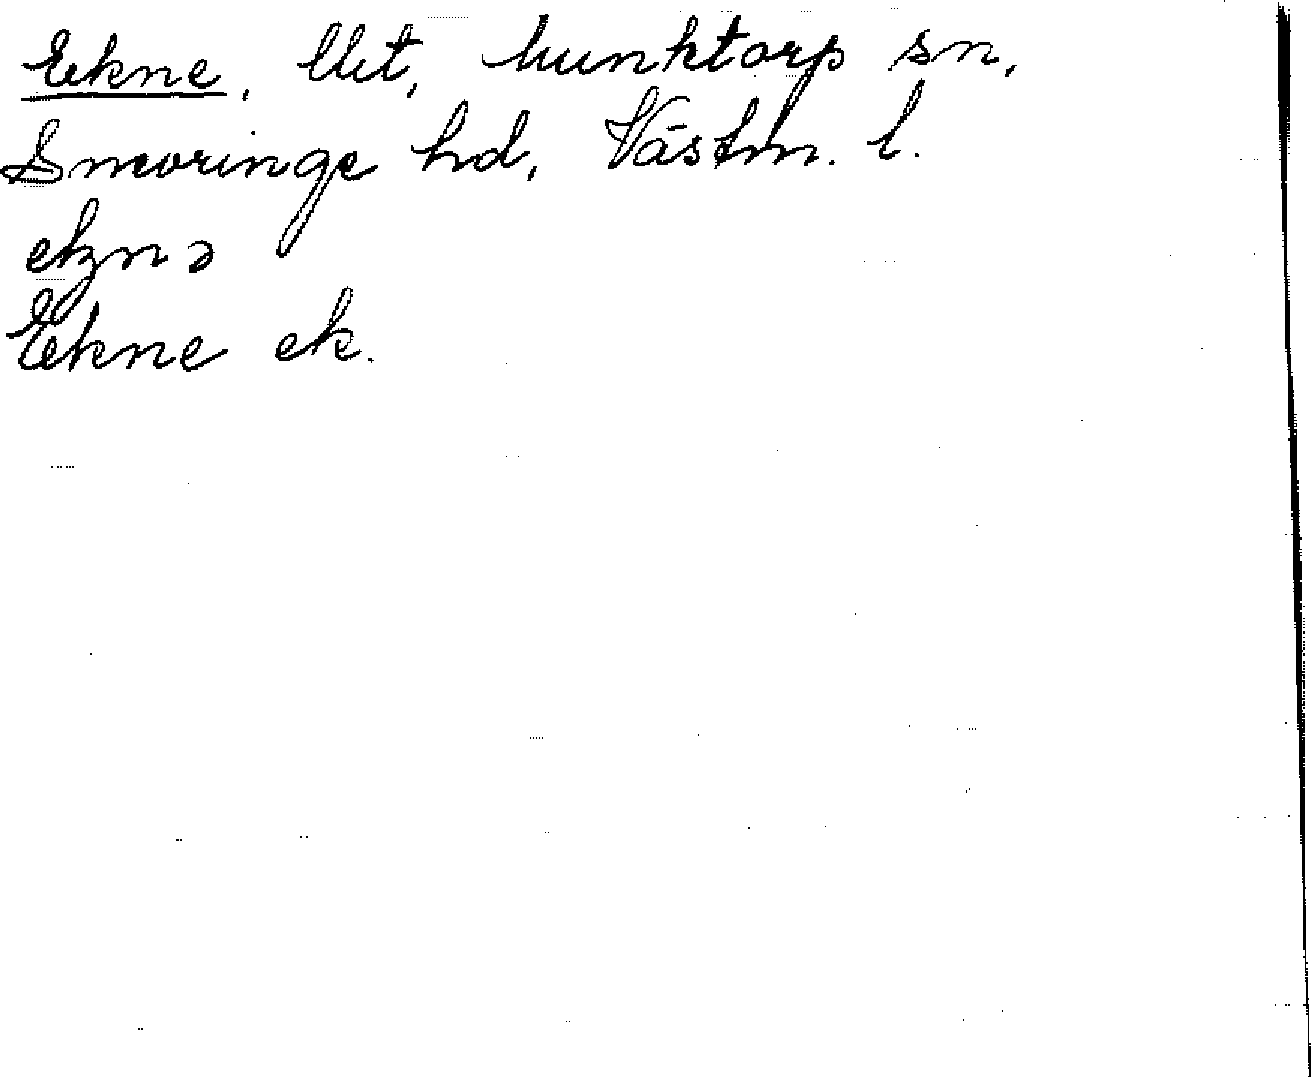 Ekne, Uet, Munktorp sn,
Snevringe hd, Västm. l.
eknə
Ekne ek.